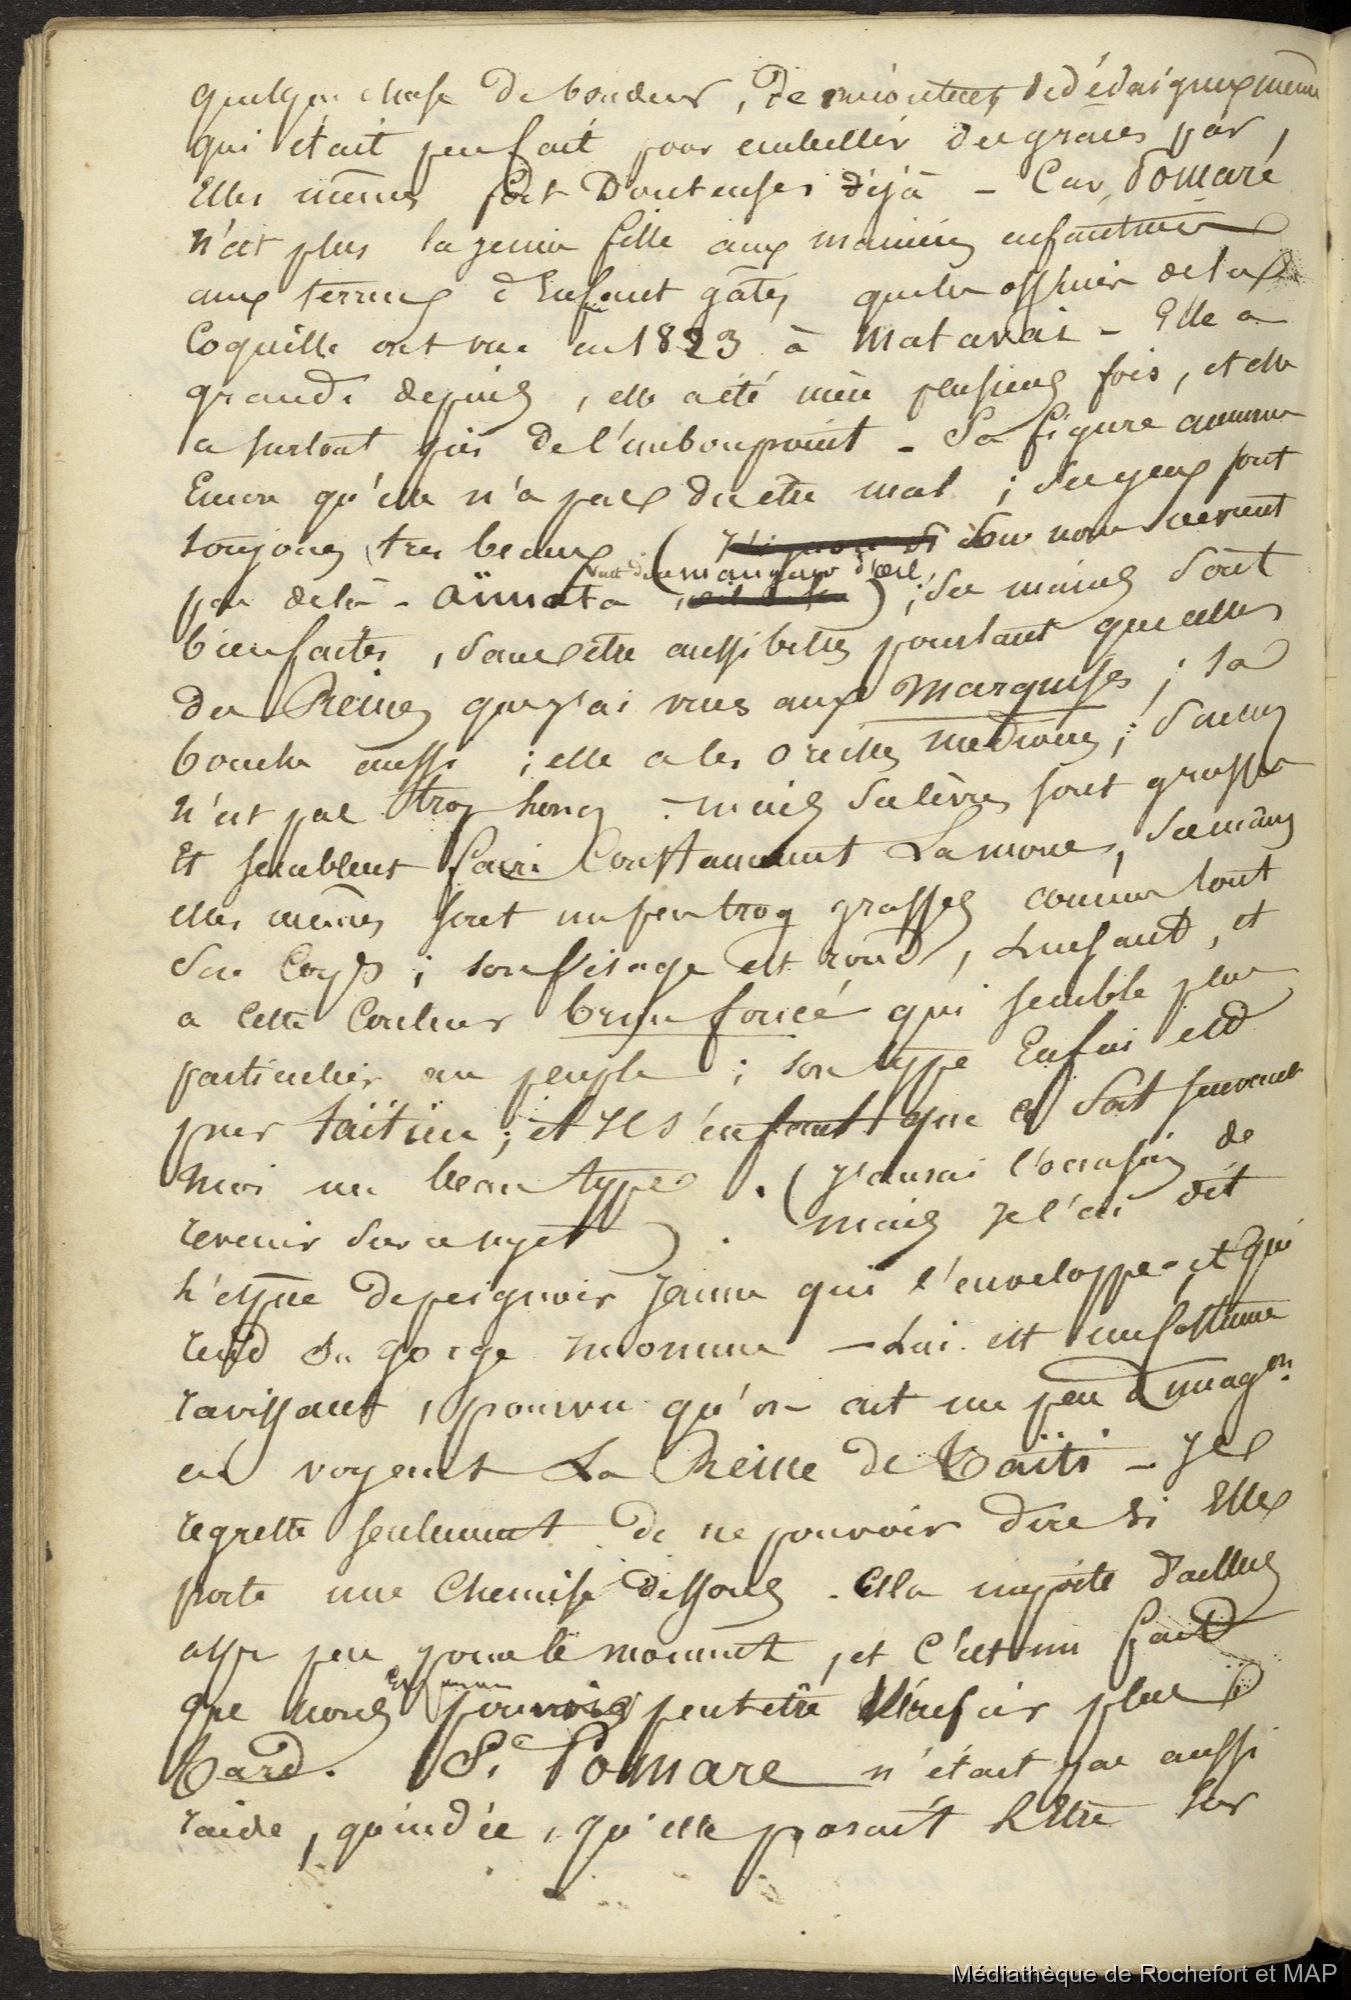 quelque chose de boudeur, de mécontent, de dédaigneux même
qui était peu fait pour embellir des graces par
Elles mêmes fort Douteuses déjà - Car Pomaré
n'est plus la jeune fille aux manières enfantines
aux terreurs d'Enfant gâtés que les officiers de la
Coquille ont vue en 1823 à Matavai - Elle a
grandi depuis, elle a été mère plusieurs fois, et elle
a surtout pris de l'embonpoint - Sa figure annonce
Encore qu'elle n'a pas du etre mal ; Ses yeux sont
toujours tres beaux ( Son nom vient
par delà - Aïmata veut dire mangeur d'œil ) ; Ses mains sont
bien faites, sans être aussi belles pourtant que celles
des Reines que j'ai vues aux Marquises ; sa
bouche aussi ; elle a les oreilles mediocres ; Son nez
n'est pas trop - mais Ses lèvres sont grosses
Et semblent faire Constamment La moue, Ses mains
elles mêmes sont un peu trop grasses comme tout
Son Corps ; son visage est rond, et
a Cette Couleur brun foncé qui semble plus
particulier au peuple ; son type Enfin est
pur taïtien ; et Il s'en faut que ce soit suivant
moi un beau type . ( J'aurai l'occasion de
revenir Sur ce sujet ) . Mais Je l'ai dit
l'espece de peignoir Jaune qui l'enveloppe et qui
rend Sa gorge - Lui est un costume
ravissant, pourvu qu'on ait un peu d'imagon.
en voyant La Reine de Taïti - Je
regrette seulement de ne pouvoir dire si Elle
porte une Chemise dessous - Cela importe d'ailleurs
assez peu pour le moment, et C'est un fait
que nous pourrons peut etre vérifier plus
tard. Si Pomare n'était pas aussi
raide, guindée, qu'elle parait l'Etre sur